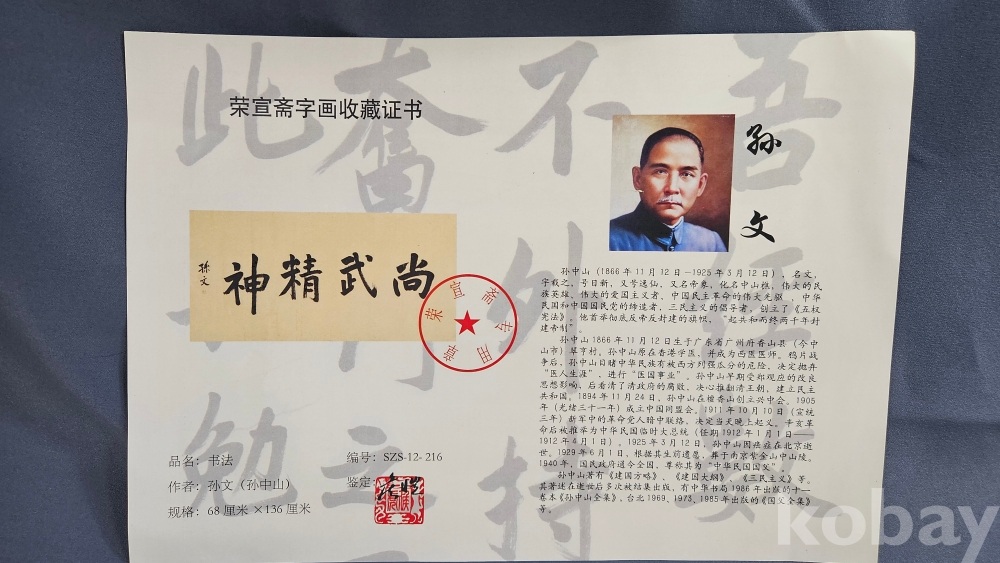 荣宣斋字画收藏证书
尚武精神
孙文
荣宣斋专用章
品名：书法
编号：SZS-12- 216
作者：孙文（孙中山）
鉴定：
规格：68 厘米 ×136 厘米
孙文
孙中山（1866 年 11 月 12 日－1925 年 3 月 12 日），名文，
字载之，号日新，又号逸仙，又名帝象，化名中山樵，伟大的民
族英雄、伟大的爱国主义者、中国民主革命的伟大先驱，中华
民国和中国国民党的缔造者，三民主义的倡导者，创立了《五权
宪法》。他首举彻底反帝反封建的旗帜，“起共和而终两千年封
建帝制”。
孙中山 1866 年 11 月 12 日生于广东省广州府香山县（今中
山市）翠亨村。孙中山原在香港学医，并成为西医医师。鸦片战
争后，孙中山目睹中华民族有被西方列强瓜分的危险，决定抛弃
“医人生涯”，进行“医国事业”。孙中山早期受郑观应的改良
思想影响，后看清了清政府的腐败，决心推翻清王朝，建立民主
共和国。1894 年 11 月 24 日，孙中山在檀香山创立兴中会。1905
年（光绪三十一年）成立中国同盟会。1911 年 10 月 10 日（宣统
三年）新军中的革命党人暗中联络，决定当天晚上起义。辛亥革
命后被推举为中华民国临时大总统（任期 1912 年 1 月 1 日——
1912 年 4 月 1 日）。1925 年 3 月 12 日，孙中山因癌症在北京逝
世。1929 年 6 月 1 日，根据其生前遗愿，葬于南京紫金山中山陵。
1940 年，国民政府通令全国，尊称其为“中华民国国父”。
孙中山著有《建国方略》、《建国大纲》、《三民主义》等。
其著述在逝世后多次被结集出版，有中华书局 1986 年出版的十一
卷本《孙中山全集》，台北 1969、1973、1985 年出版的《国父全集》
等。
此 奮 不 吾
勉 持
kobay